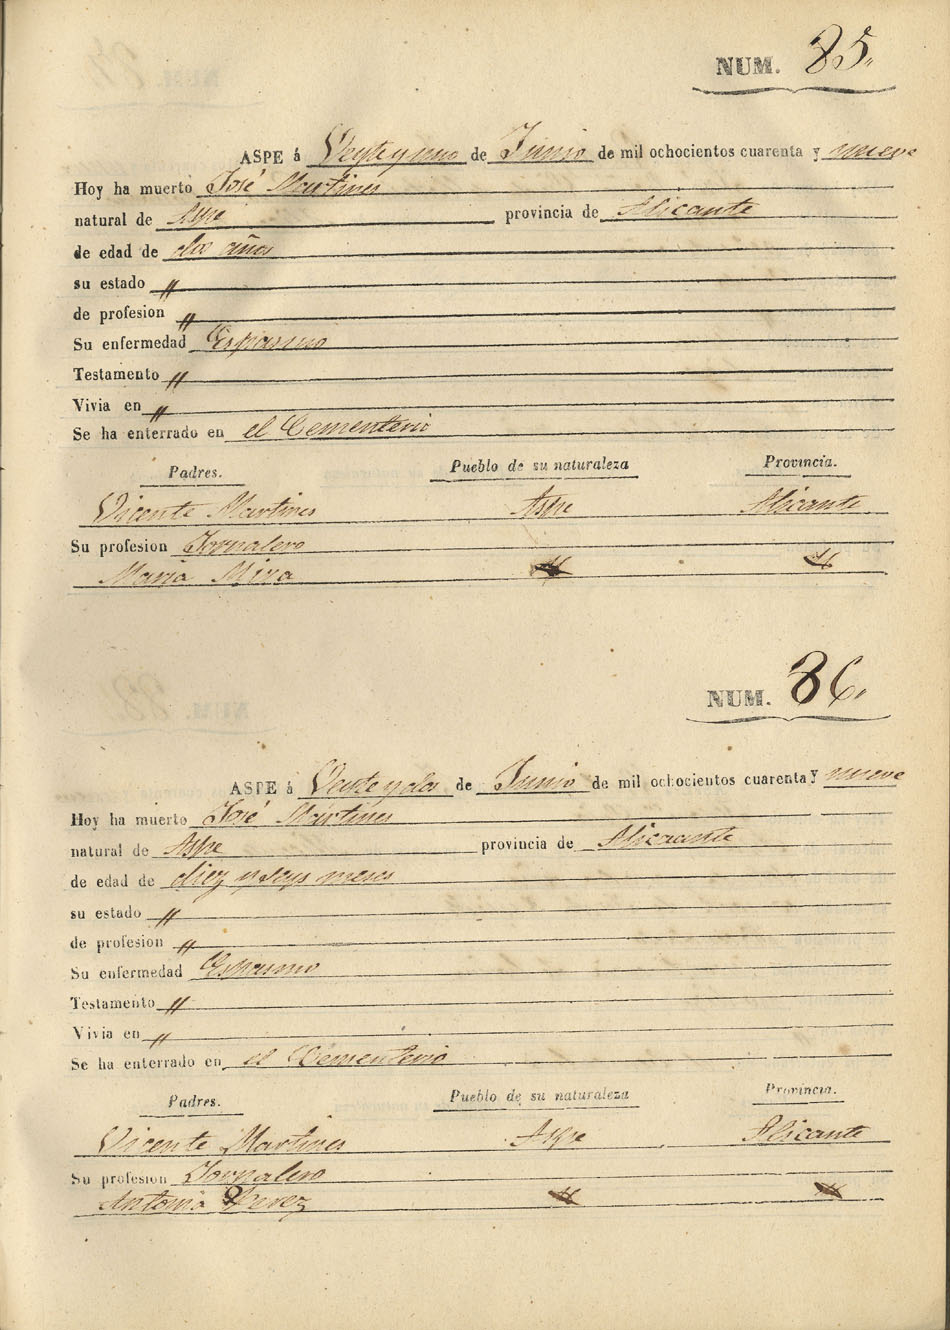 NUM. 85.
ASPE á Veyte y uno de Junio de mil ochocientos cuarenta y nueve
Hoy ha muerto José Martines
natural de Aspe provincia de Alicante
de edad de dos años
su estado "
de profesion "
Su enfermedad Espasmo
Testamento "
Vivia en "
Se ha enterrado en el Cementerio
Padres. Pueblo de su naturaleza Provincia.
Vicente Martines Aspe Alicante
Su profesion Jornalero
Maria Mira " "
NUM. 86.
ASPE á Veute y dos de Junio de mil ochocientos cuarenta y nueve
Hoy ha muerto José Martines
natural de Aspe provincia de Alicante
de edad de diez y seys meses
su estado "
de profesion "
Su enfermedad Espasmo
Testamento "
Vivia en "
Se ha enterrado en el Cementerio
Padres. Pueblo de su naturaleza Provincia.
Vicente Martines Aspe Alicante
Su profesion Jornalero
Antonia Perez " "